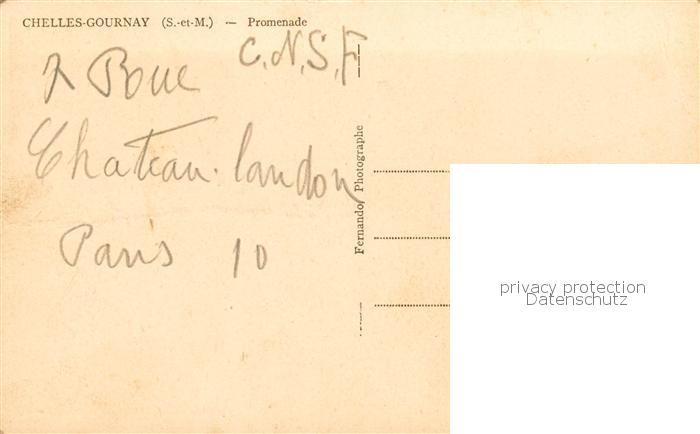 CHELLES-GOURNAY (S.-et-M.) — Promenade
C.N.S.F
Chateau. landon
Paris 10
Fernando, Photographe
privacy protection
Datenschutz